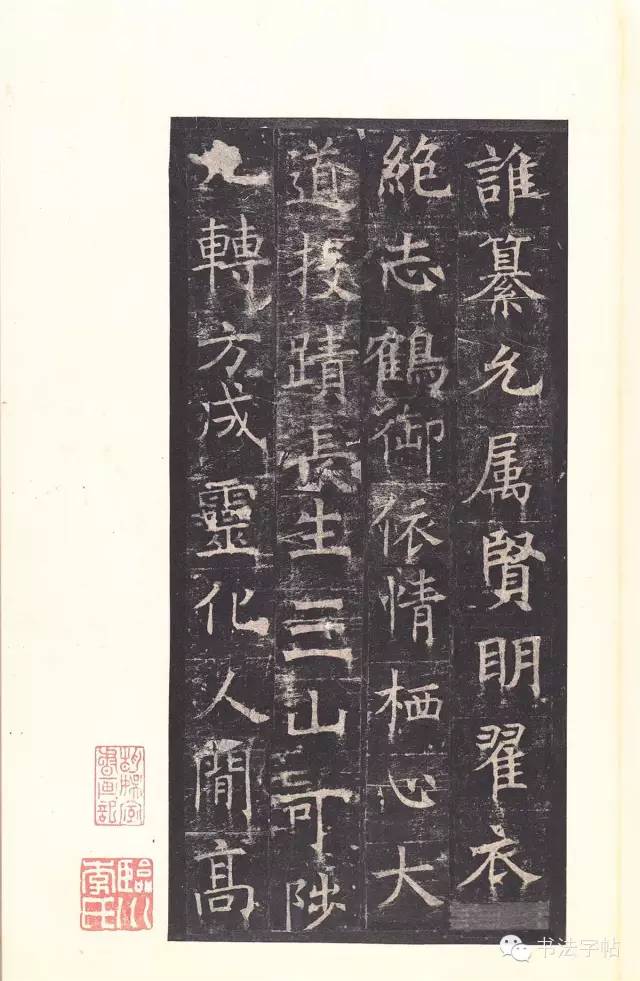 誰纂允属賢明翟衣
絶志鶴御依情栖心大
道投蹟長生三山可陟
九轉方成靈化人間髙
臨川李氏
书法字帖